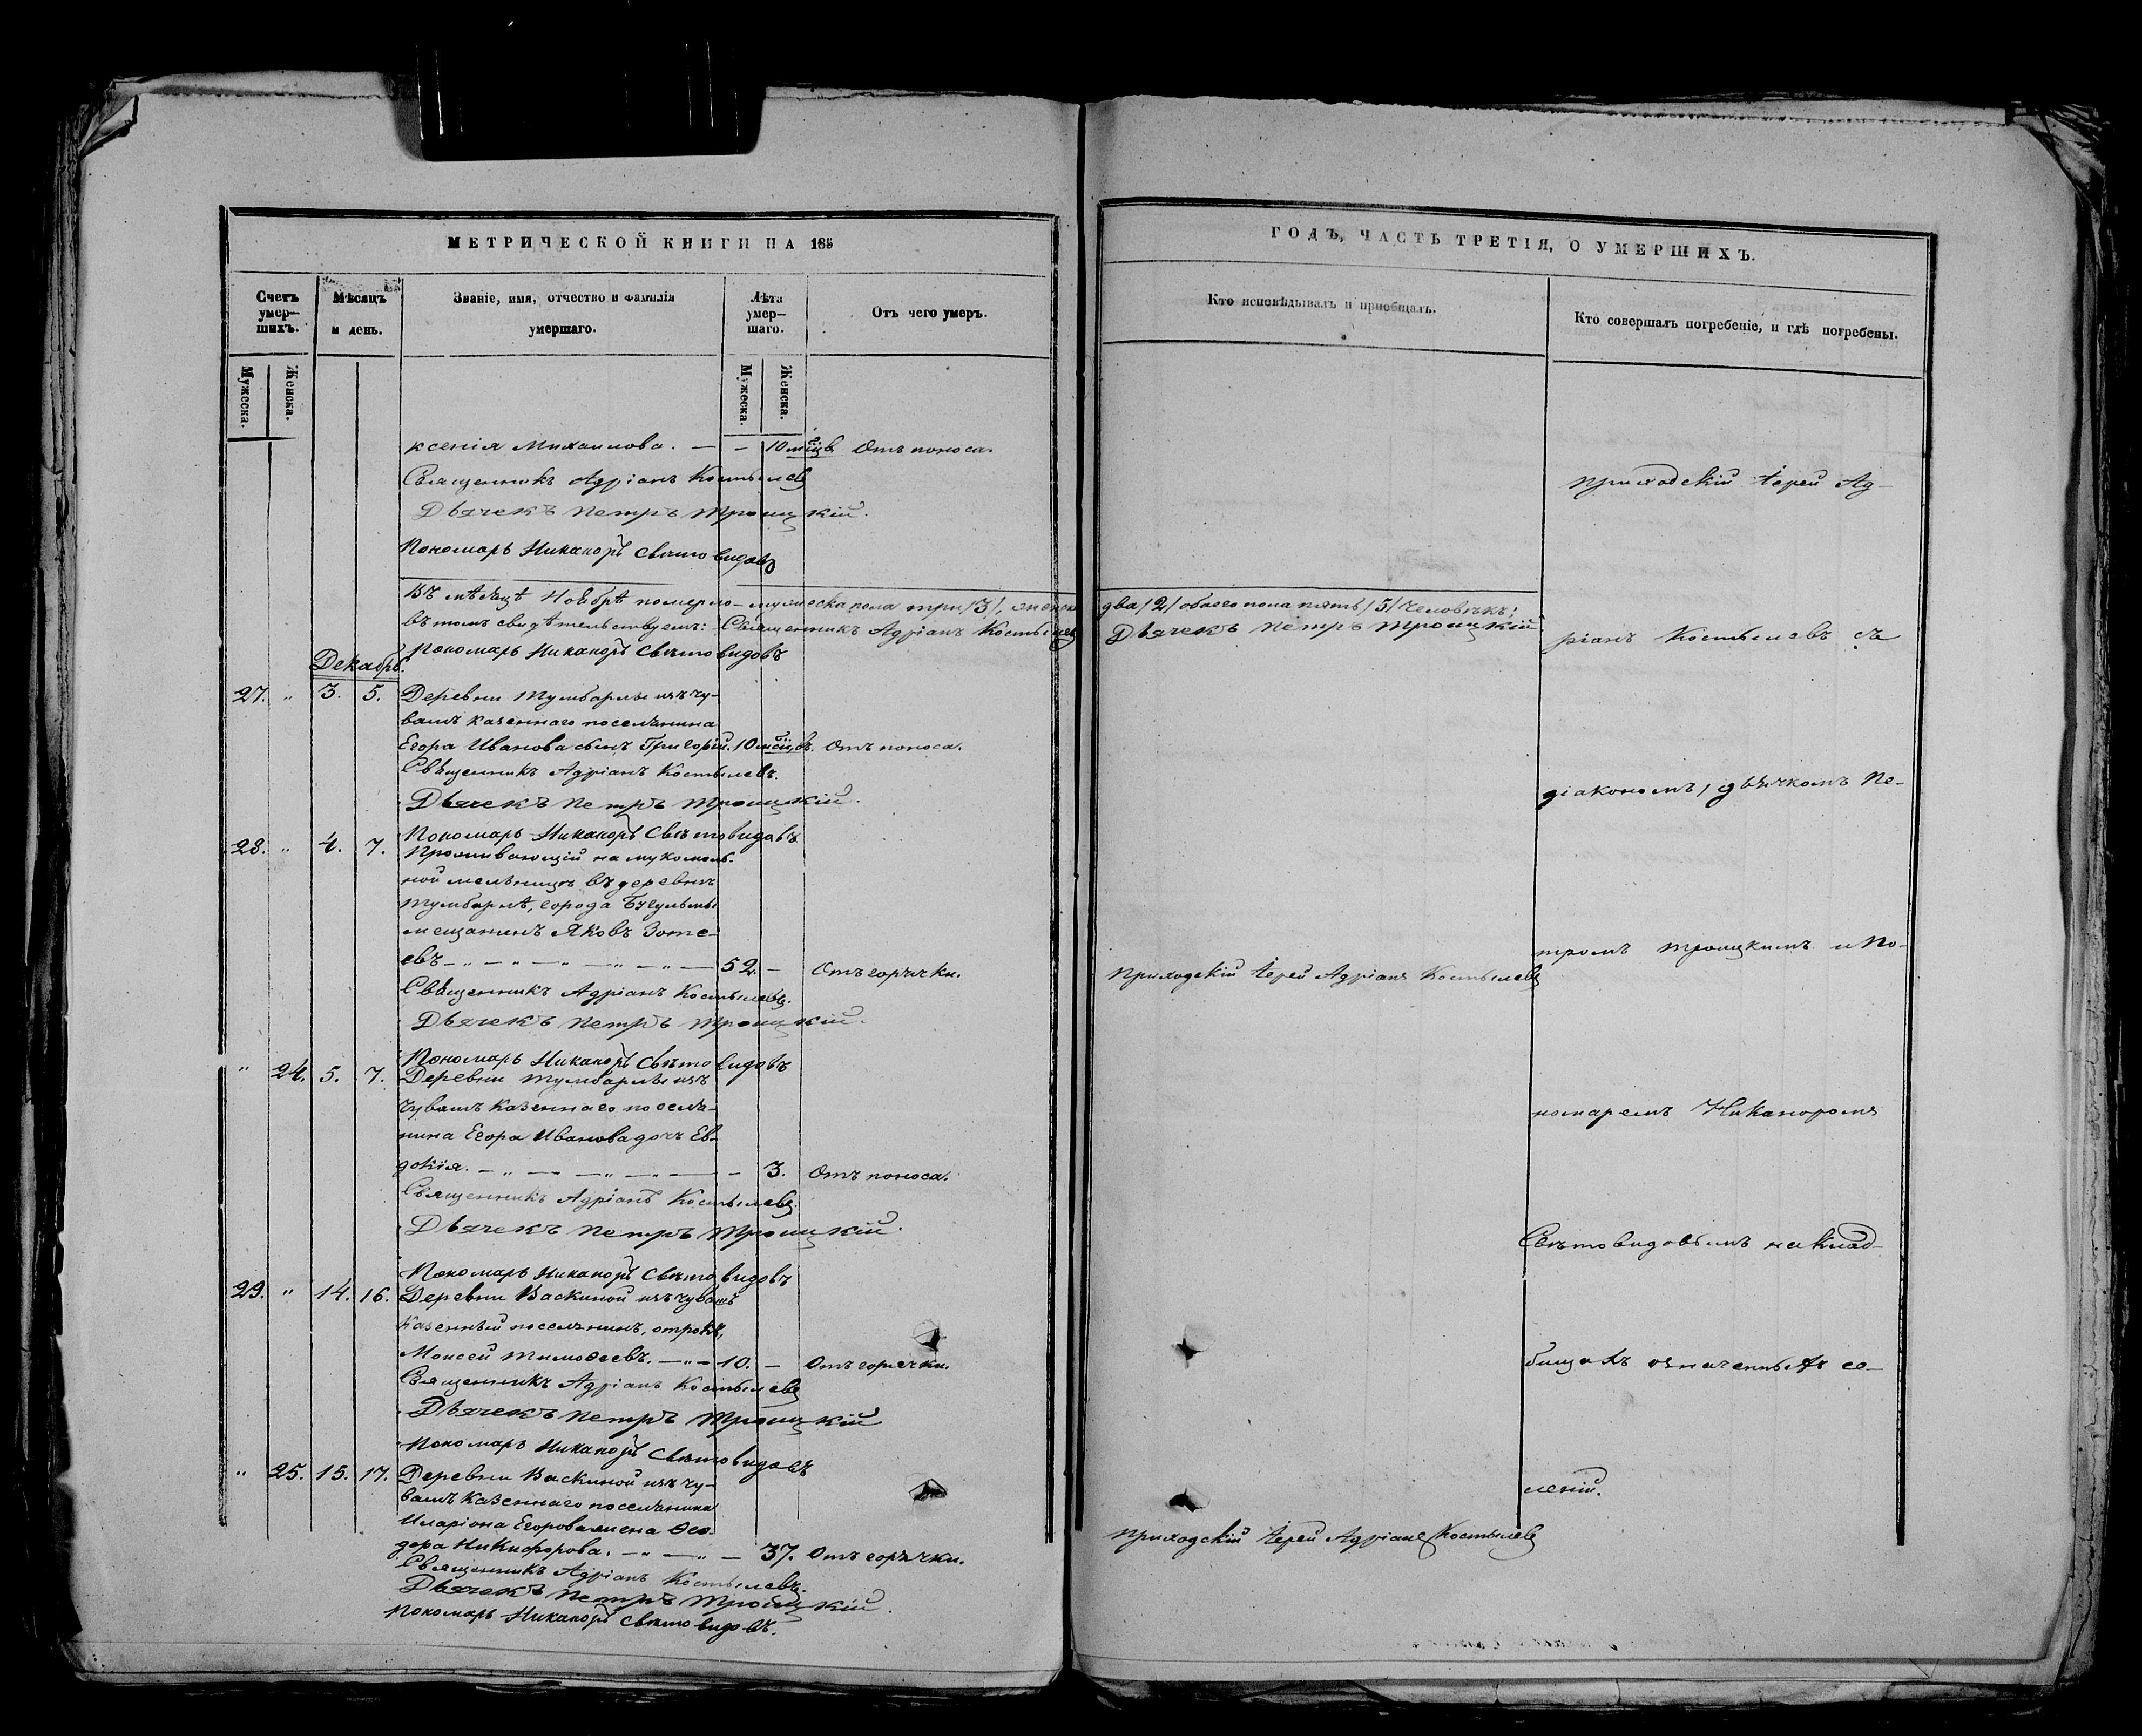 МЕТРИЧЕСКОЙ КНИГИ НА 185
Счетъ умер—шихъ.
Мѣсяцъ и день.
Званіе, имя, отчество и фамилія умершаго.
Лѣта умер—шаго.
Отъ чего умеръ.
Мужеска.
Женска.
Мужеска.
Женска.
ксенія Михаилова. — — 10 мсцв Отъ поноса.
Священникъ Адріанъ Костылевъ
Дьячекъ Петръ Троицкій.
Пономарь Никаноръ Свѣтовидовъ
Въ мѣсяцѣ Ноябрѣ померло мужеска пола три /3/, женска
въ томъ свидѣтельствуемъ: Священникъ Адріанъ Костылевъ
Пономарь Никаноръ Свѣтовидовъ
Декабрь.
27. " 3. 5. Деревни Тумбарлы изъ чу-
вашъ казеннаго поселянина
Егора Иванова сынъ Григорій. 10 мсцвъ. Отъ поноса.
Священникъ Адріанъ Костылевъ.
Дьячекъ Петръ Троицкій.
Пономарь Никаноръ Свѣтовидовъ
28. " 4. 7. Проживающій на мукомоль-
ной мельницѣ въ деревнѣ
Тумбарлѣ, города Бугульмы
мещанинъ Яковъ Зоте-
евъ — " — " — " — " — " — 52. — Отъ горячки.
Священникъ Адріанъ Костылевъ.
Дьячекъ Петръ Троицкій.
Пономарь Никаноръ Свѣтовидовъ
" 24. 5. 7. Деревни Тумбарлы изъ
чувашъ казеннаго поселя-
нина Егора Иванова дочь Ев-
докія. — " — " — " — — 3. Отъ поноса.
Священникъ Адріанъ Костылевъ.
Дьячекъ Петръ Троицкій.
Пономарь Никаноръ Свѣтовидовъ
29. " 14. 16. Деревни Васкиной изъ чувашъ
казенный поселянинъ, отрокъ,
Моисей Тимоѳеевъ. — " — 10. — Отъ горячки.
Священникъ Адріанъ Костылевъ
Дьячекъ Петръ Троицкій
Пономарь Никаноръ Свѣтовидовъ
" 25. 15. 17. Деревни Васкиной изъ чу-
вашъ казеннаго поселянина
Иларіона Егорова жена Ѳео-
дора Никифорова. — " — " — 37. Отъ горячки.
Священникъ Адріанъ Костылевъ.
Дьячекъ Петръ Троицкій.
Пономарь Никаноръ Свѣтовидовъ.
ГОДЪ, ЧАСТЬ ТРЕТІЯ, О УМЕРШИХЪ.
Кто исповѣдывалъ и приобщалъ.
Кто совершалъ погребеніе, и гдѣ погребены.
Приходскій Іерей Ад-
два /2/ обоего пола пять /5/ человѣкъ:
Дьячекъ Петръ Троицкій
ріанъ Костылевъ съ
діакономъ, дьячкомъ Пе-
тромъ Троицкимъ и По-
Приходскій Іерей Адріанъ Костылевъ
номаремъ Никаноромъ
Свѣтовидовымъ на клад-
бищахъ означенныхъ се-
леній.
Приходскій Іерей Адріанъ Костылевъ